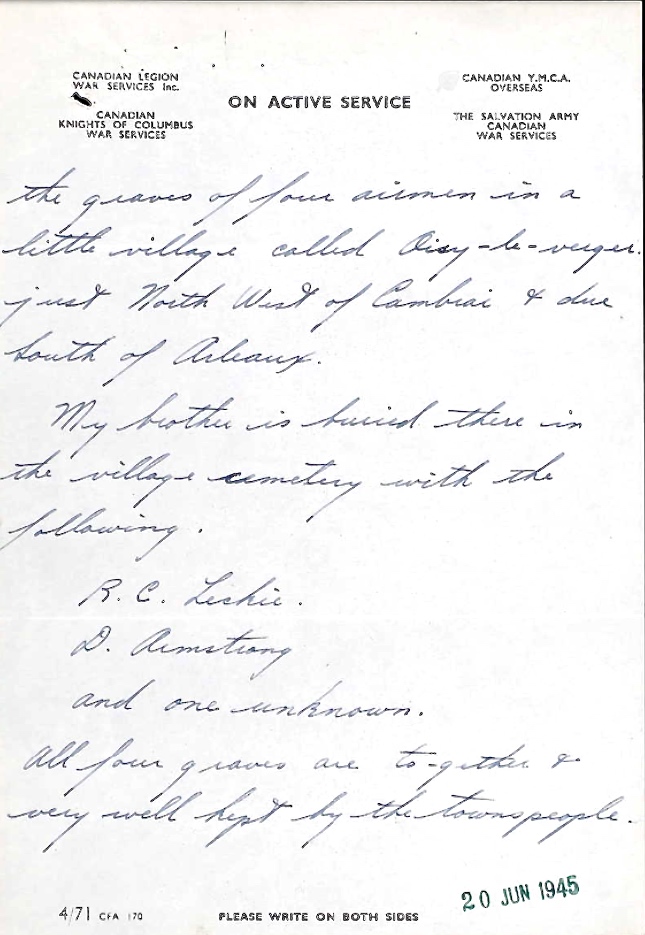 CANADIAN LEGION
WAR SERVICES Inc.
CANADIAN
KNIGHTS OF COLUMBUS
WAR SERVICES
ON ACTIVE SERVICE
CANADIAN Y.M.C.A.
OVERSEAS
THE SALVATION ARMY
CANADIAN
WAR SERVICES
the graves of four airmen in a
little village called Oisy-le-verger.
just North West of Cambrai & due
South of Arleaux.
My brother is buried there in
the village cemetery with the
following.
R. C. Leskie.
D. Armstrong
and one unknown.
All four graves are to-gether &
very well kept by the townspeople.
20 JUN 1945
4/71 CFA 170
PLEASE WRITE ON BOTH SIDES